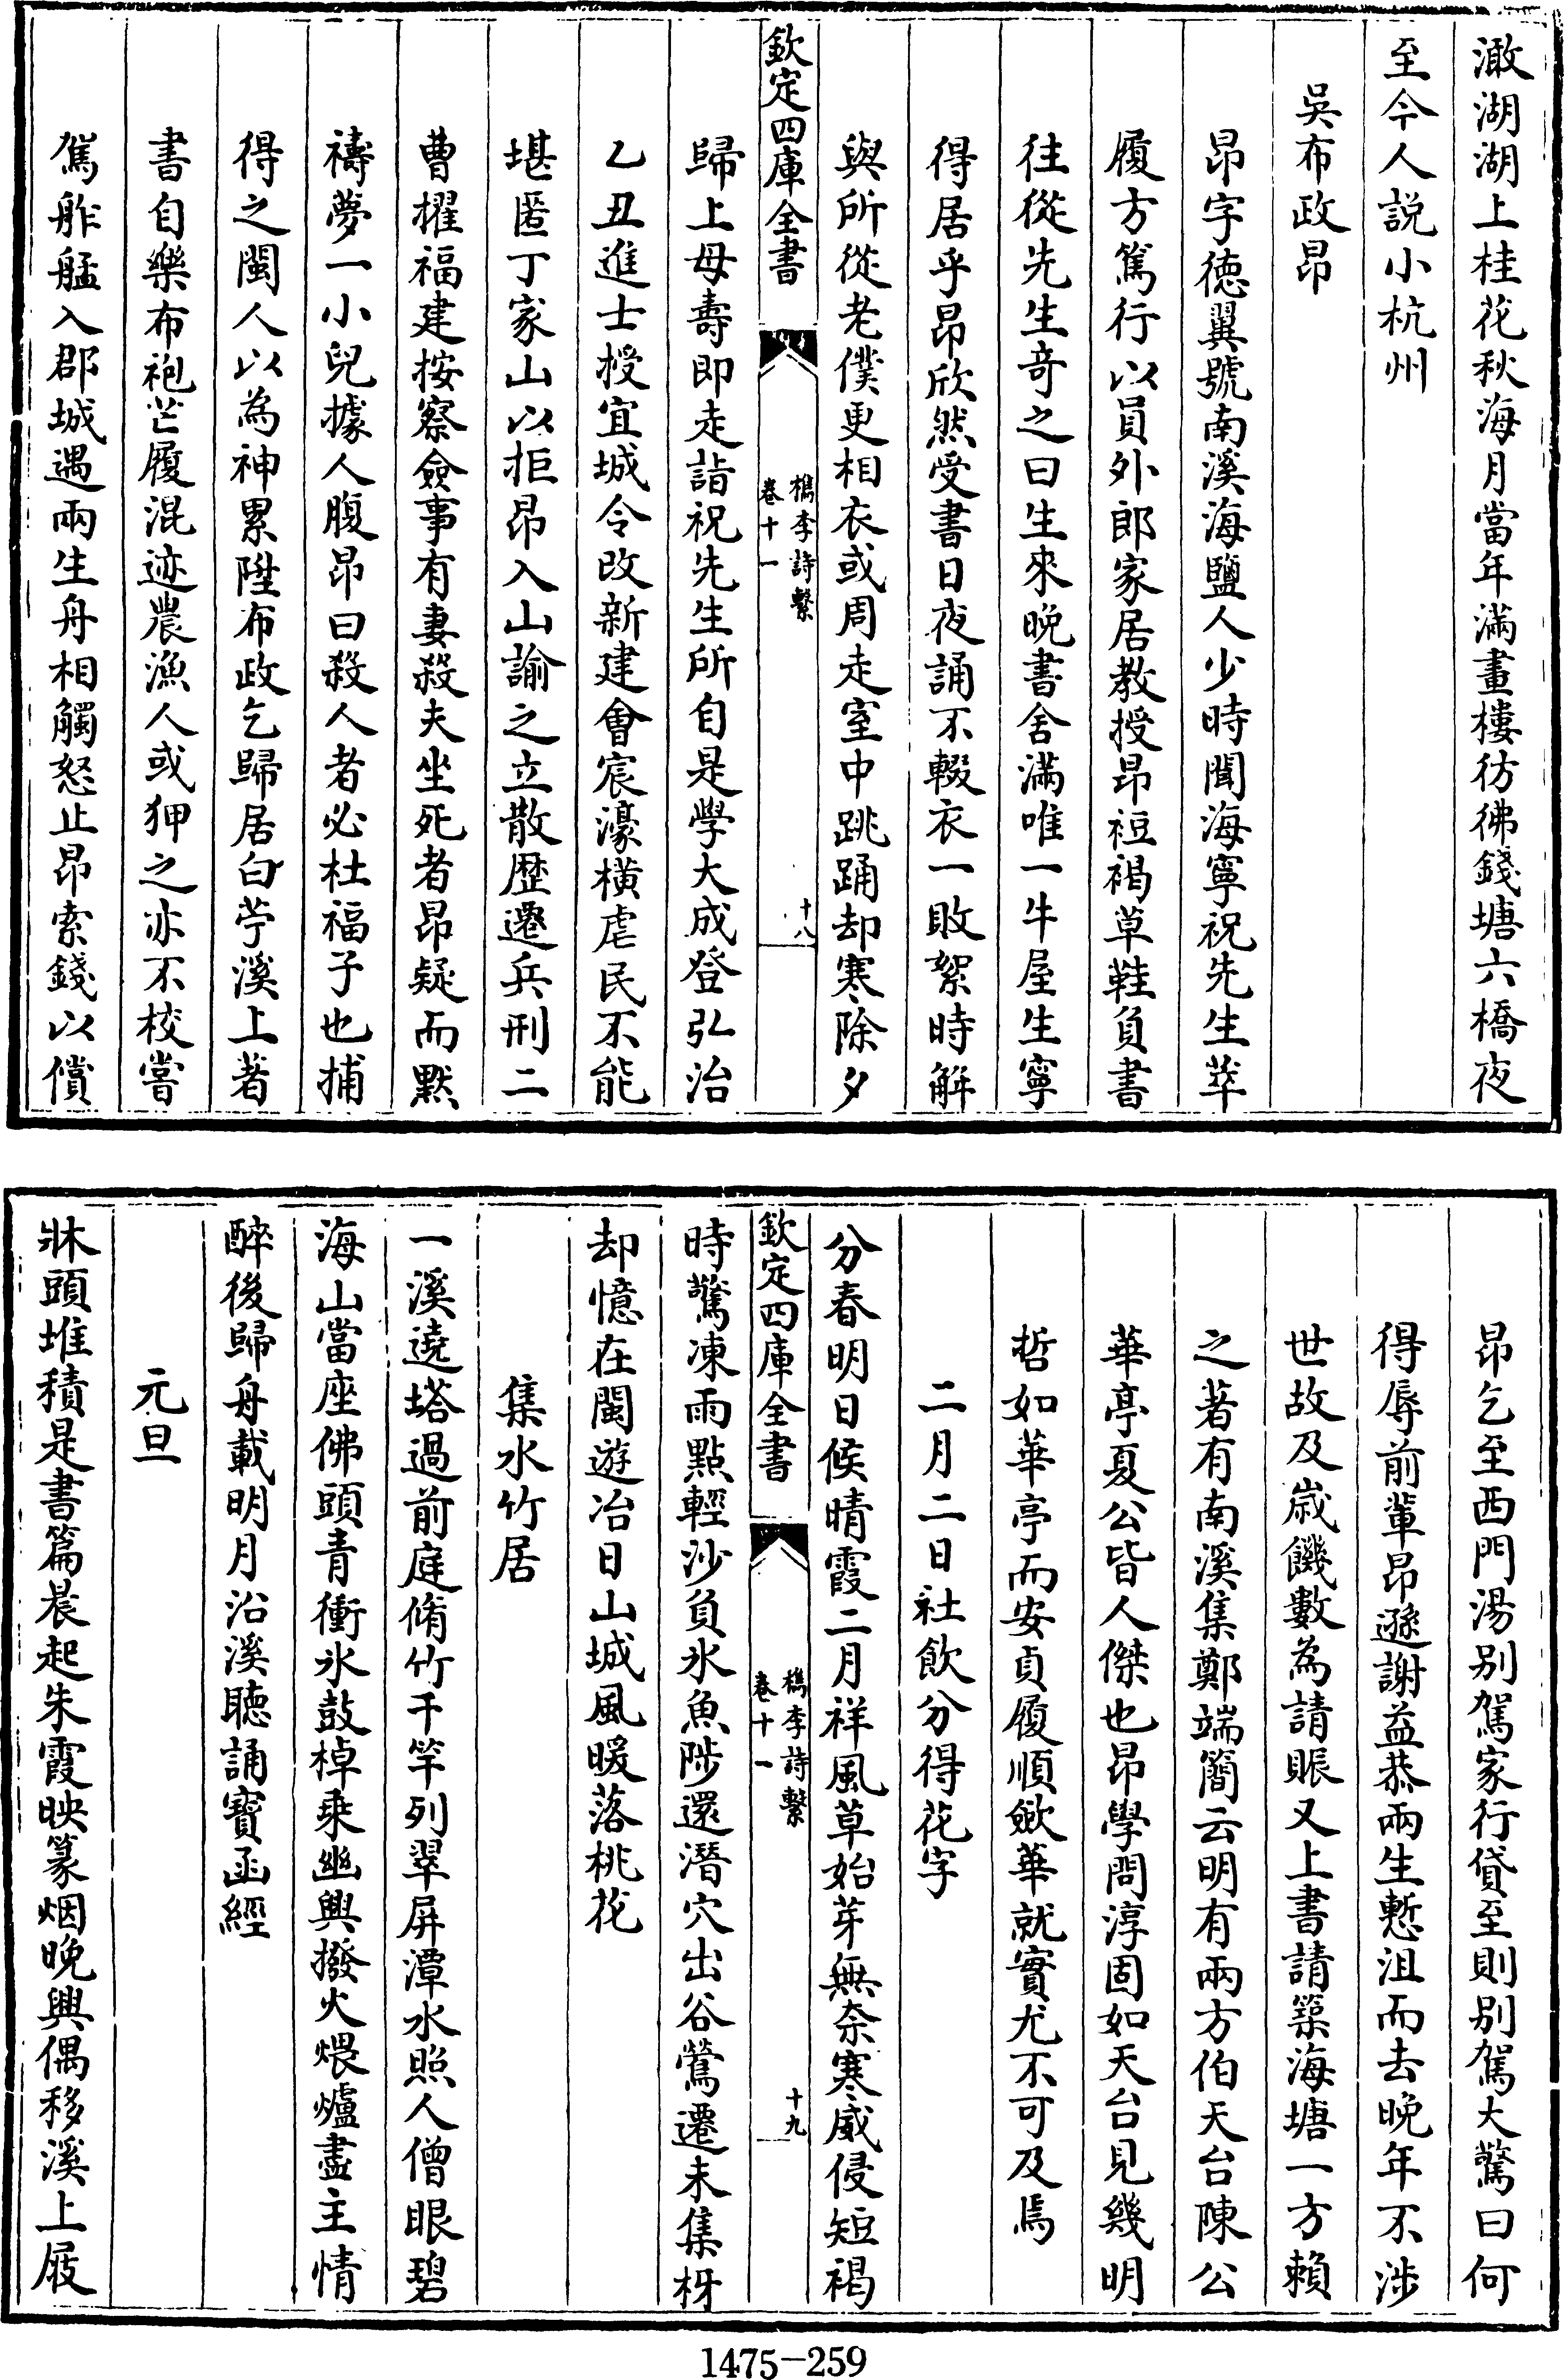 澉湖湖上桂花秋海月當年滿畫樓彷彿錢塘六橋夜
至今人説小杭州
吳布政昂
昂字徳翼號南溪海鹽人少時聞海寧祝先生萃
履方篤行以員外郎家居教授昂裋褐草鞋負書
往從先生竒之曰生來晩書舍滿唯一牛屋生寧
得居乎昂欣然受書日夜誦不輟衣一敗絮時解
與所從老僕更相衣或周走室中跳踊却寒除夕
欽定四庫全書
檇李詩繫
卷十一
十八
歸上母壽即走詣祝先生所自是學大成登弘治
乙丑進士授宜城令改新建會宸濠横虐民不能
堪匿丁家山以拒昂入山諭之立散歴遷兵刑二
曹擢福建按察僉事有妻殺夫坐死者昂疑而默
禱夢一小兒據人腹昂曰殺人者必杜福子也捕
得之閩人以為神累陞布政乞歸居白苧溪上著
書自樂布袍芒履混迹農漁人或狎之亦不校嘗
駕舴艋入郡城遇兩生舟相觸怒止昂索錢以償
昂乞至西門湯别駕家行貸至則别駕大驚曰何
得辱前輩昂遜謝益恭兩生慙沮而去晩年不涉
世故及歳饑數為請賑又上書請築海塘一方賴
之著有南溪集鄭端簡云明有兩方伯天台陳公
華亭夏公皆人傑也昂學問淳固如天台見幾明
哲如華亭而安貞履順斂華就實尤不可及焉
二月二日社飲分得花字
分春明日候晴霞二月祥風草始芽無奈寒威侵短褐
欽定四庫全書
檇李詩繫
卷十一
十九
時驚凍雨點輕沙負氷魚陟還潛穴出谷鶯遷未集枒
却憶在閩遊冶日山城風暖落桃花
集水竹居
一溪遶塔過前庭脩竹千竿列翠屏潭水照人僧眼碧
海山當座佛頭青衝氷鼓棹乗幽興撥火煨爐盡主情
醉後歸舟載明月沿溪聴誦寳函經
元旦
牀頭堆積是書篇晨起朱霞映篆烟晩興偶移溪上屐
1475-259